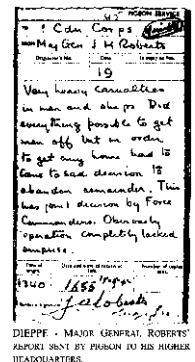 PIGEON SERVICE
1 Cdn Corps
FROM Maj Gen J H Roberts
19
Very heavy casualties
in men and ships. Did
everything possible to get
men off but in order
to get any home had to
come to sad decision to
abandon remainder. This
was joint decision by Force
Commanders. Obviously
operation completely lacked
surprise.
1340
DIEPPE - MAJOR GENERAL ROBERTS'
REPORT SENT BY PIGEON TO HIS HIGHER
HEADQUARTERS.